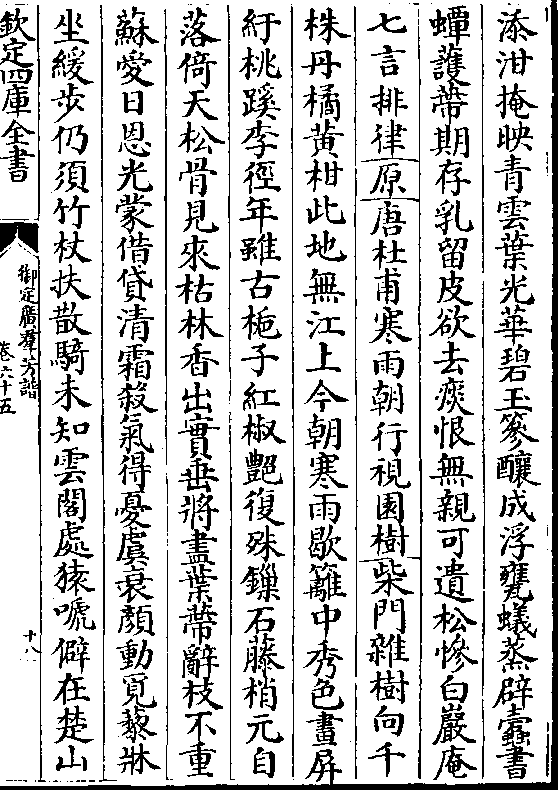 添泔掩映青雲葉光華碧玉篸釀成浮甕蟻蒸辟蠧書
蟫䕶蔕期存乳留皮欲去痰恨無親可遺松惨白巖庵
七言排律原唐杜甫寒雨朝行視園樹柴門雜樹向千
株丹橘黄柑此地無江上今朝寒雨歇籬中秀色畫屏
紆桃蹊李徑年雖古梔子紅椒艷復殊鏁石藤梢元自
落倚天松骨見來枯林香出實垂將盡葉蔕辭枝不重
蘇愛日恩光蒙借貸清霜殺氣得憂虞衰顔動覓藜牀
坐緩步仍須竹杖扶散騎未知雲閣處猿嗁僻在楚山
欽定四庫全書
御定廣羣芳譜
卷六十五
十八